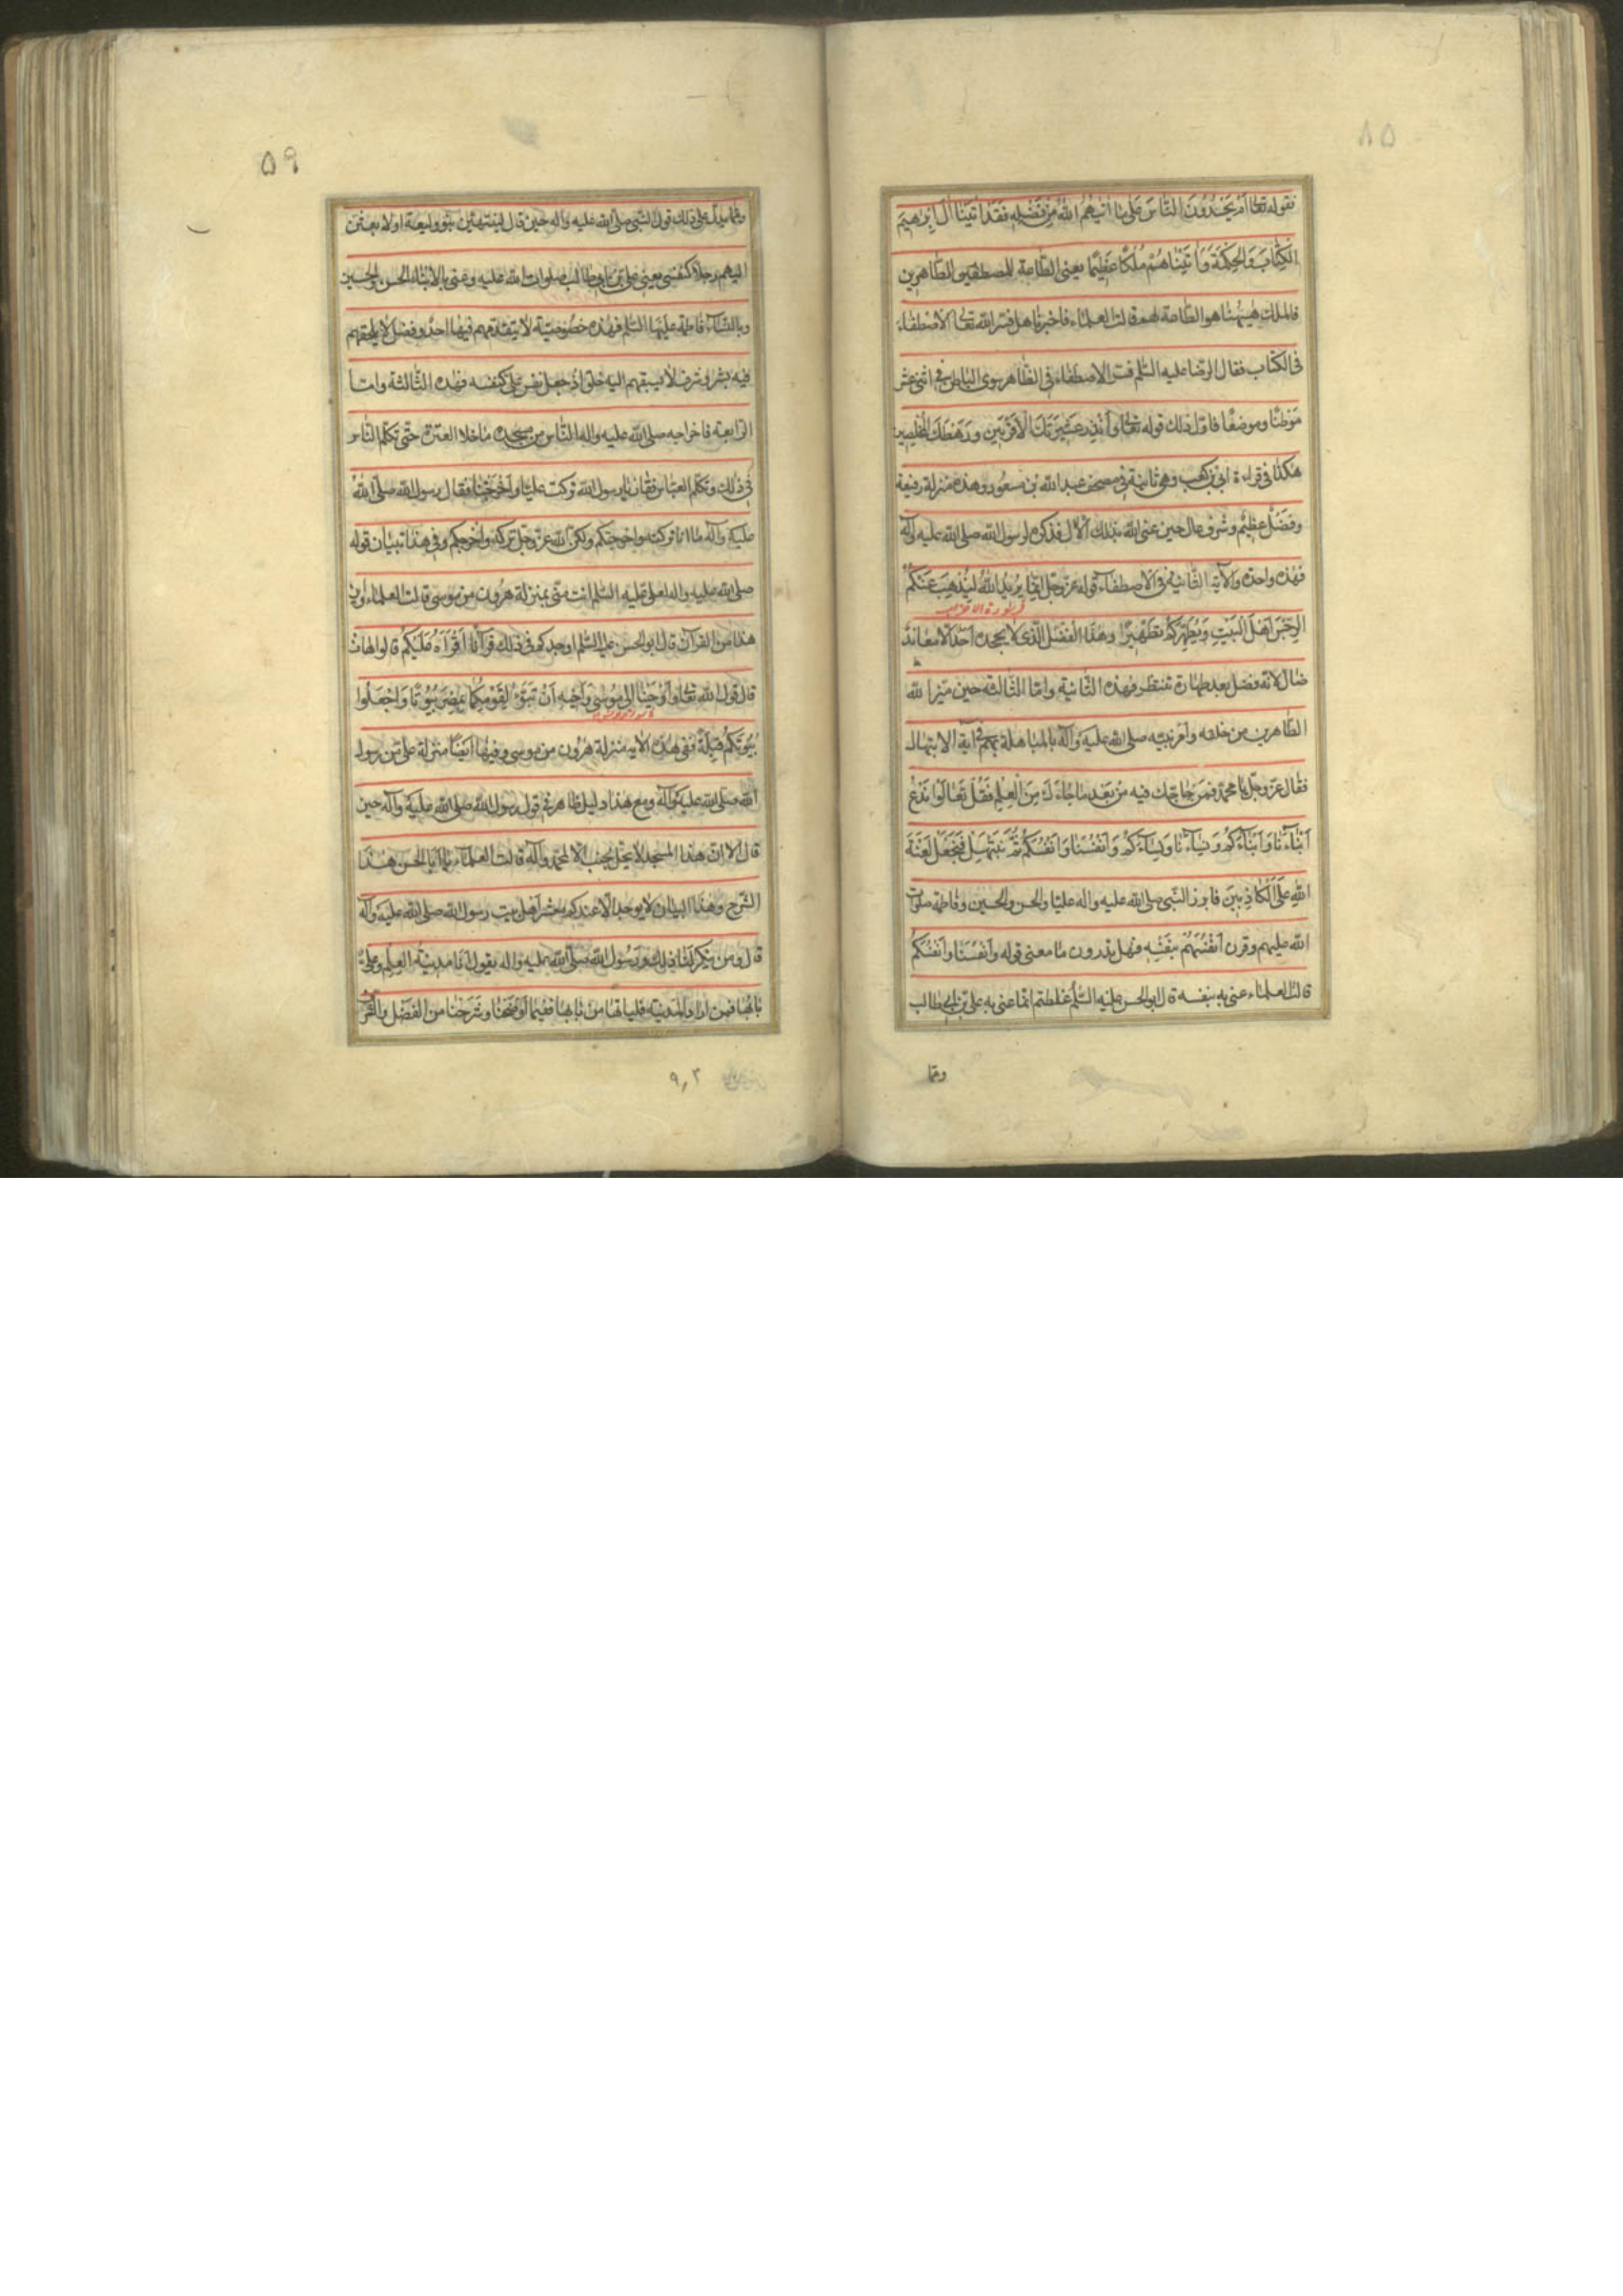 ٨٥
بقوله تعالى أم يحسدون الناس على ما آتيهم الله من فضله فقد آتينا آل إبرهيم
الكتاب والحكمة وآتيناهم ملكا عظيما يعنى الطاعة للمصطفين الطاهرين
فالملك هيهنا هو الطاعة لهم قالت العلماء فاخبرنا هل فسر الله تعالى الاصطفاء
فى الكتاب فقال الرضا عليه السلم فسر الاصطفاء فى الظاهر سوى الباطن فى اثنى عشر
موطنا وموضعا فاول ذلك قوله تعالى وأنذر عشيرتك الاقربين ورهطك المخلصين
هكذا فى قراءة ابى بن كعب وهى ثابتة فى مصحف عبد الله بن مسعود وهذه منزلة رفيعة
وفضل عظيم وشرف عال حين عنى الله بذلك الآل فذكره لرسول الله صلى الله عليه وآله
فهذه واحدة والآية الثانية فى الاصطفاء قوله عز وجل إنما يريد الله ليذهب عنكم
فى سورة الاحزاب
الرجس أهل البيت ويطهركم تطهيرا وهذا الفضل الذى لا يجحده أحد إلا معاند
ضال لانه فضل بعد طهارة تنتظر فهذه الثانية واما الثالثة حين ميز الله
الطاهرين من خلقه وأمر نبيه صلى الله عليه وآله بالمباهلة بهم فى آية الابتهال
فقال عز وجل يا محمد فمن حاجك فيه من بعد ما جاءك من العلم فقل تعالوا ندع
أبناءنا وأبناءكم ونساءنا ونساءكم وأنفسنا وأنفسكم ثم نبتهل فنجعل لعنة
الله على الكاذبين فابرز النبى صلى الله عليه واله عليا والحسن والحسين وفاطمة صلوات
الله عليهم وقرن أنفسهم بنفسه فهل تدرون ما معنى قوله وأنفسنا وأنفسكم
قالت العلماء عنى به نفسه قال ابو الحسن عليه السلم غلطتم انما عنى به على بن ابى طالب
ومما
٥٩
ومما يدل على ذلك قول النبى صلى الله عليه واله حين قال لينتهين بنو وليعة او لابعثن
اليهم رجلا كنفسى يعنى على بن ابى طالب صلوات الله عليه وعنى بالابناء الحسن والحسين
وبالنساء فاطمة عليها السلم فهذه خصوصية لا يتقدمهم فيها احد وفضل لا يلحقهم
فيه بشر وشرف لا يسبقهم اليه خلق اذ جعل نفس على كنفسه فهذه الثالثة واما
الرابعة فاخراجه صلى الله عليه واله الناس من مسجده ما خلا العترة حتى تكلم الناس
فى ذلك وتكلم العباس فقال يا رسول الله تركت عليا وأخرجتنا فقال رسول الله صلى الله
عليه وآله ما انا تركته واخرجتكم ولكن الله عز وجل تركه وأخرجكم وفى هذا تبيان قوله
صلى الله عليه واله لعلى عليه السلم انت منى بمنزلة هرون من موسى قالت العلماء واين
هذا من القرآن قال ابو الحسن عليه السلم اوجدكم فى ذلك قرآنا أقرأه عليكم قالوا هات
قال قول الله تعالى وأوحينا إلى موسى وأخيه أن تبوءا لقومكما بمصر بيوتا واجعلوا
بيوتكم قبلة ففى هذه الآية منزلة هرون من موسى وفيها أيضا منزلة على من رسول
الله صلى الله عليه وآله ومع هذا دليل ظاهر فى قول رسول الله صلى الله عليه وآله حين
قال الا ان هذا المسجد لا يحل لجنب الا لمحمد وآله قالت العلماء يا أبا الحسن هذا
الشرح وهذا البيان لا يوجد الا عندكم معشر أهل بيت رسول الله صلى الله عليه وآله
قال ومن ينكر لنا ذلك ورسول الله صلى الله عليه واله يقول انا مدينة العلم وعلى
بابها فمن اراد المدينة فلياتها من بابها ففيما أوضحنا وشرحنا من الفضل والشرف